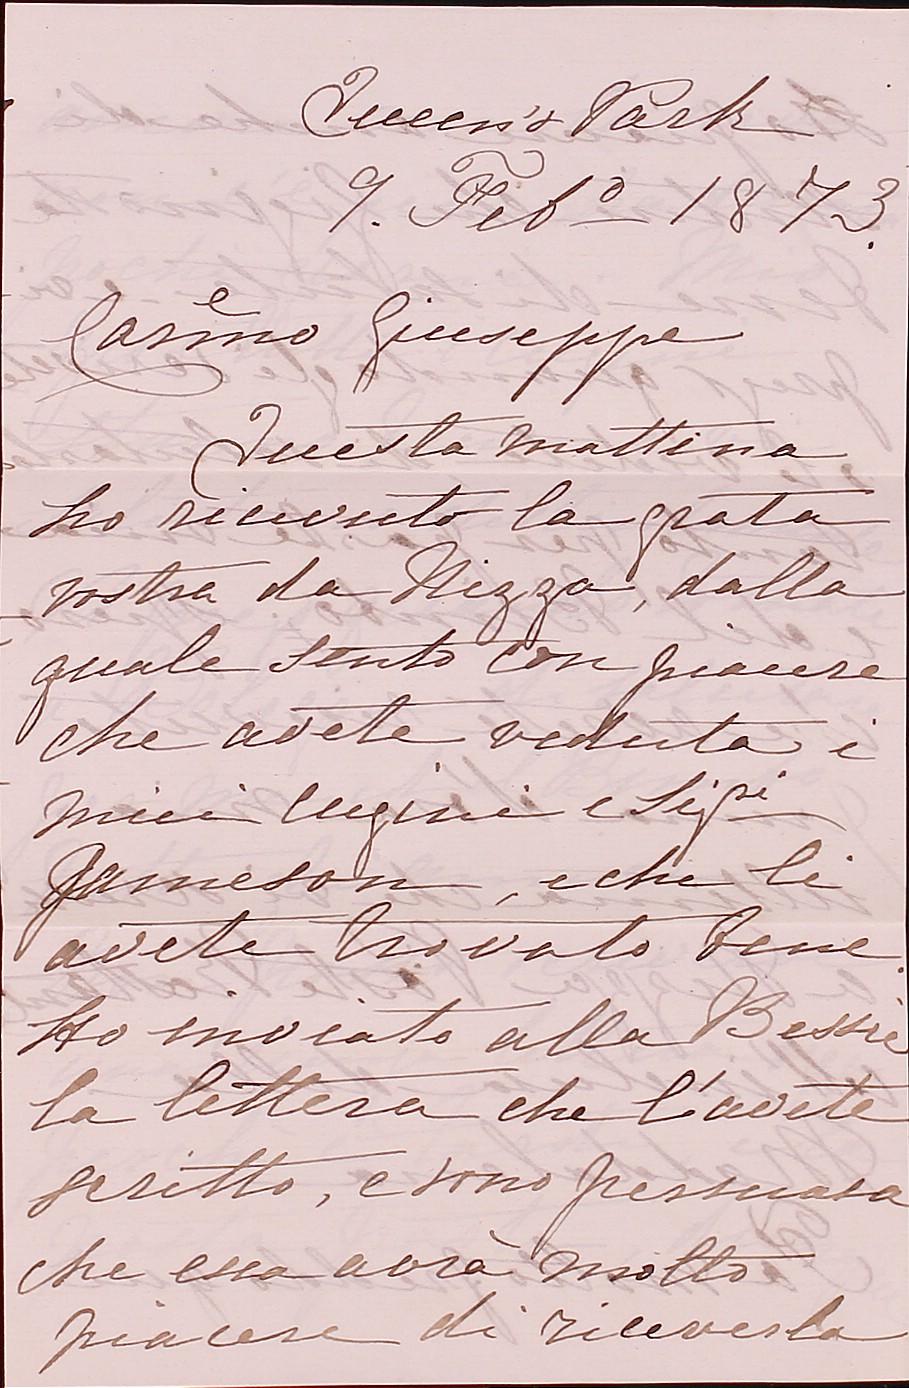 Queen's Park
9. Feb° 1873.
Carmo Giuseppe
Questa mattina
ho ricevuto la grata
vostra da Nizza, dalla
quale sento con piacere
che avete veduta i
miei Cugini e Sigri
Jameson, e che li
avete trovato bene.
Ho inviato alla Bessie
la lettera che l'avete
scritto, e sono persuasa
che essa avrà molto
piacere di riceverla